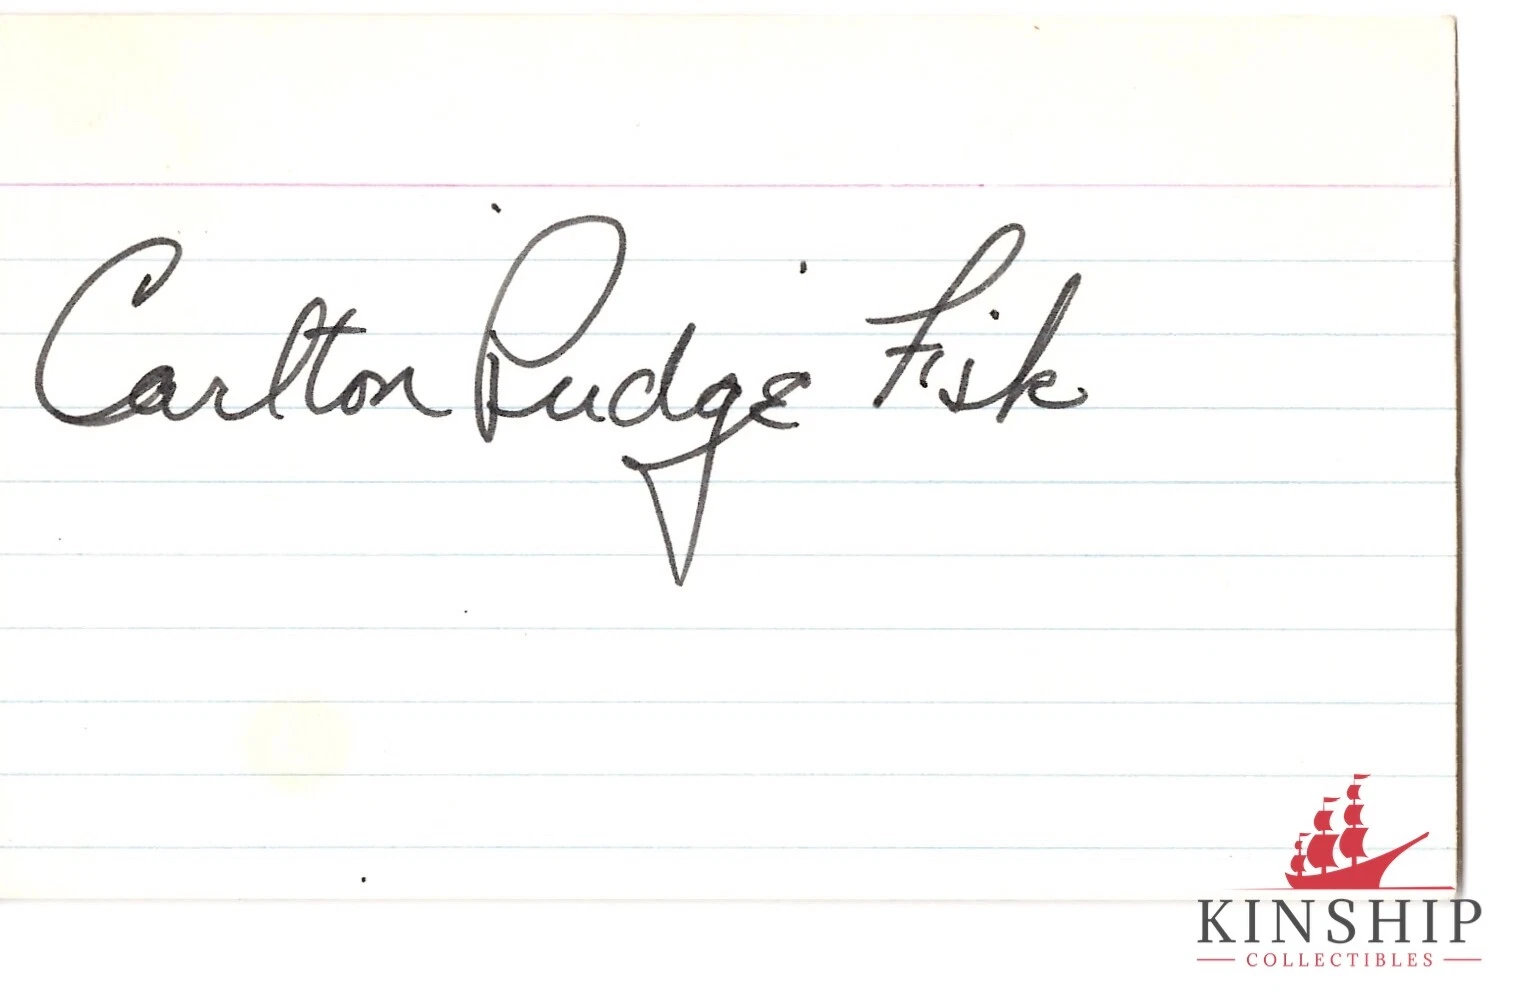 Carlton Pudge Fisk
KINSHIP
COLLECTIBLES